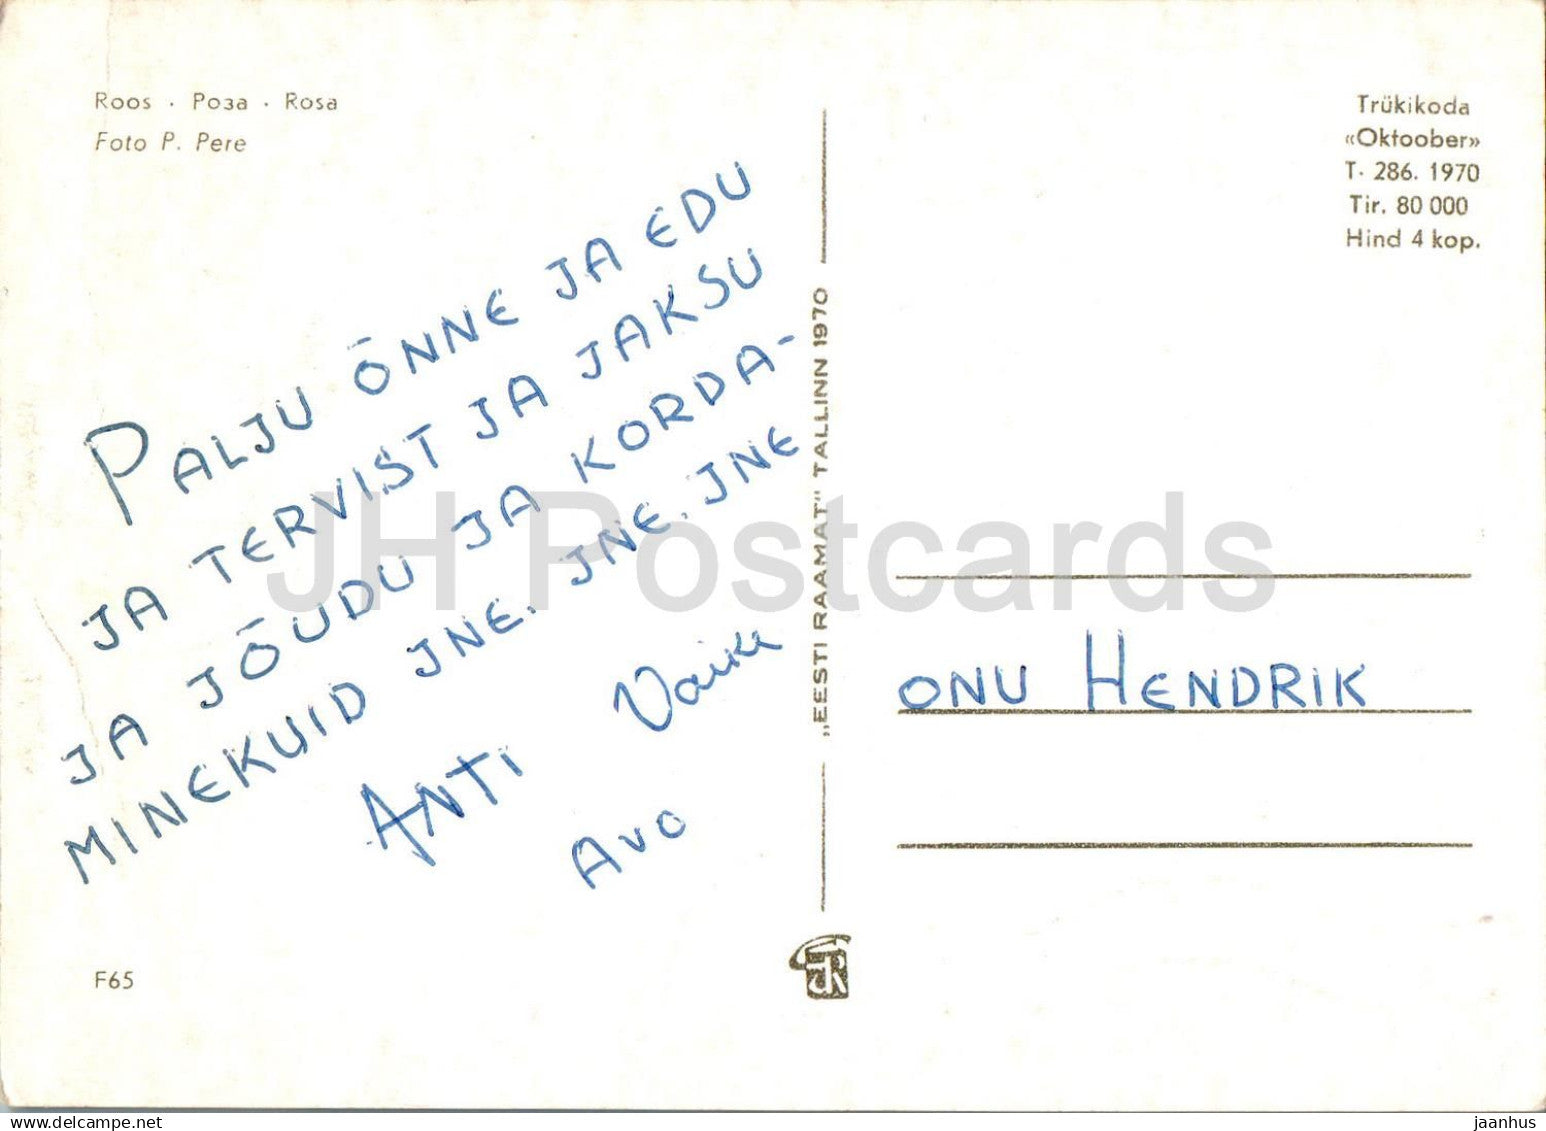 Roos · Роза · Rosa
Foto P. Pere
PALJU ÕNNE JA EDU
JA TERVIST JA JAKSU
JA JÕUDU JA KORDA-
MINEKUID JNE. JNE. JNE
ANTI Vaike
AVO
F65
„EESTI RAAMAT" TALLINN 1970
Trükikoda
«Oktoober»
T. 286. 1970
Tir. 80 000
Hind 4 kop.
ONU HENDRIK
JH Postcards
delcampe.net
jaanhus